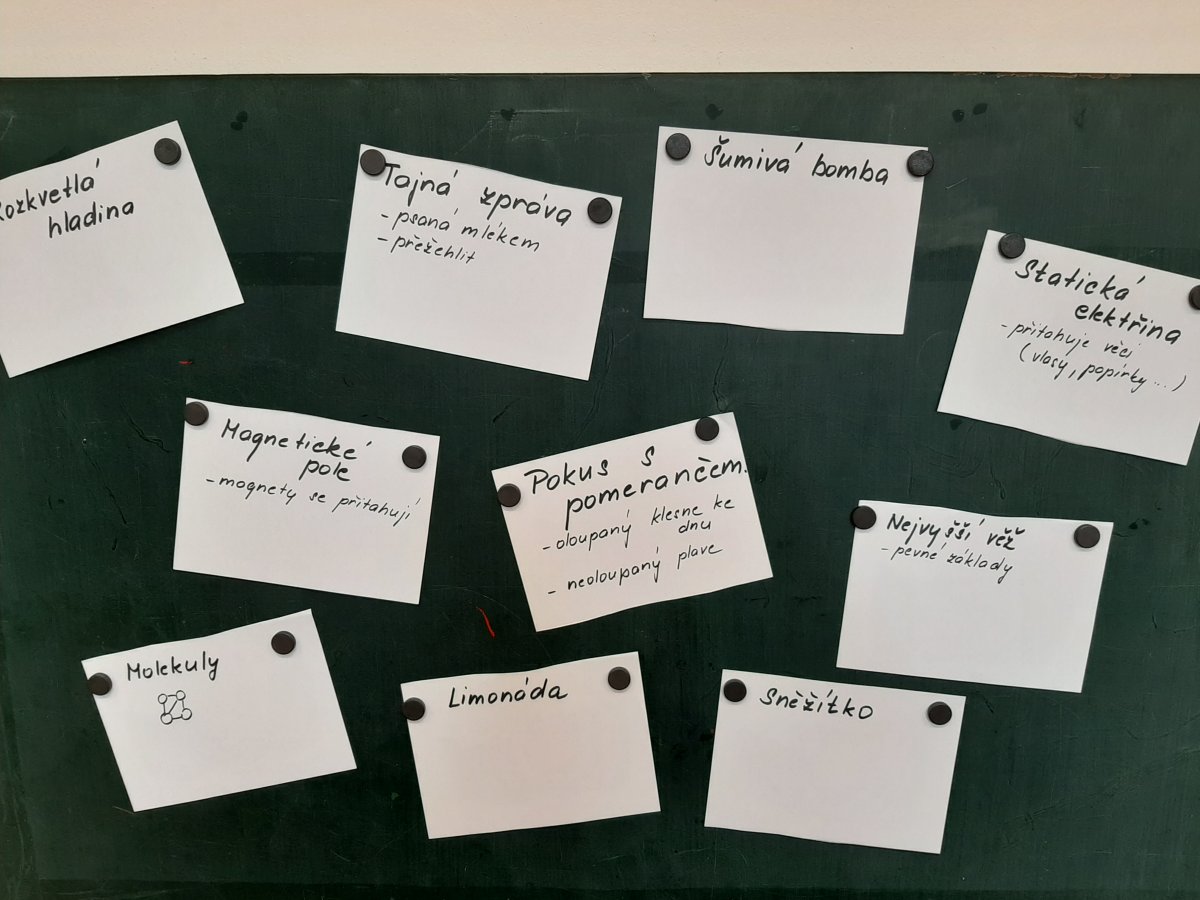 Rozkvetlá
hladina
Tajná zpráva
- psaná mlékem
- přežehlit
Šumivá bomba
Statická
elektřina
- přitahuje věci
(vlasy, papírky...)
Magnetické
pole
- magnety se přitahují
Pokus s
pomerančem.
- oloupaný klesne ke
dnu
- neoloupaný plave
Nejvyšší věž
- pevné základy
Molekuly
Limonáda
Sněžítko